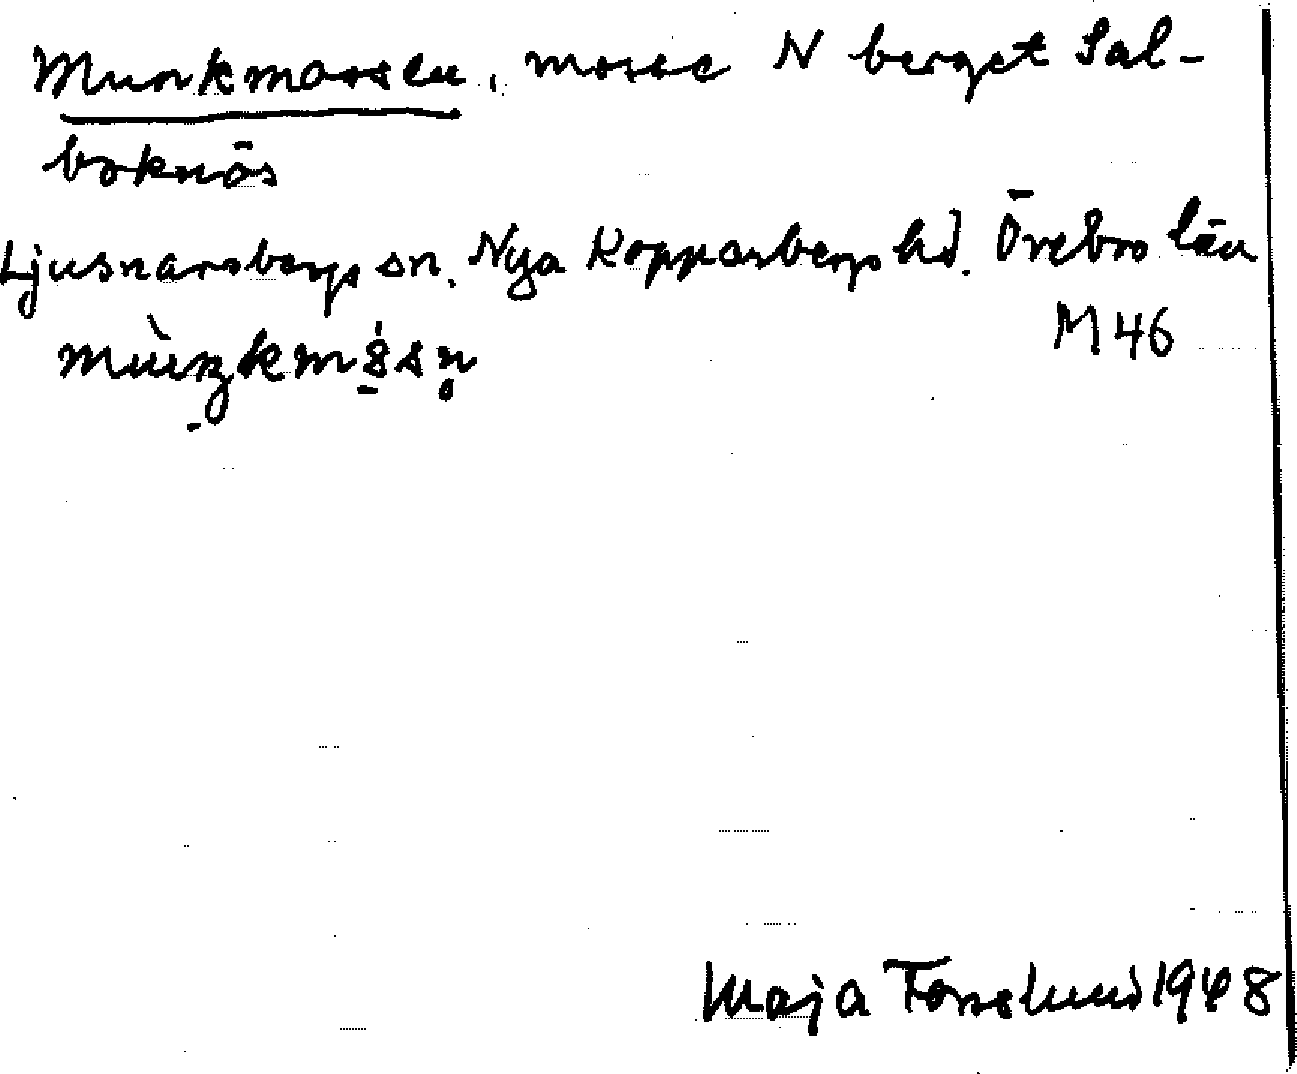 Munkmossen, mosse N berget Sal-
boknös
Ljusnarsbergs sn. Nya Kopparbergs hd. Örebro län
M46
Maja Forslund 1948